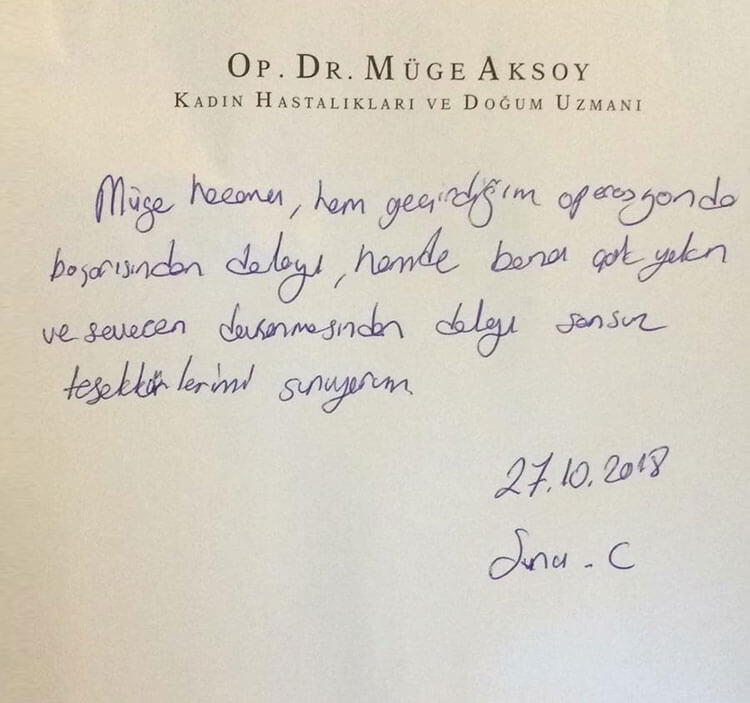 OP. DR. MÜGE AKSOY
KADIN HASTALIKLARI VE DOĞUM UZMANI
Müge hocama, hem geçirdiğim operasyonda
başarısından dolayı, hemde bana çok yakın
ve sevecen davranmasından dolayı sonsuz
teşekkürlerimi sunuyorum
27.10.2018
C